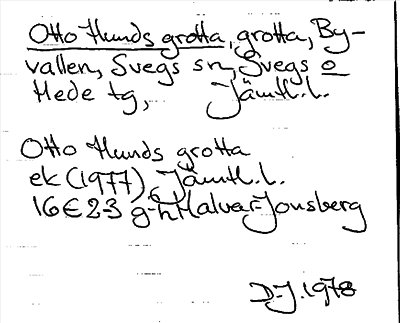 Otto Hunds grotta, grotta, By-
vallen, Svegs sn, Svegs o
Hede tg, Jämtl.l.
Otto Hunds grotta
ek (1977), Jämtl.l.
16E 2-3 g-h Malvar-Jonsberg
D.J. 1978